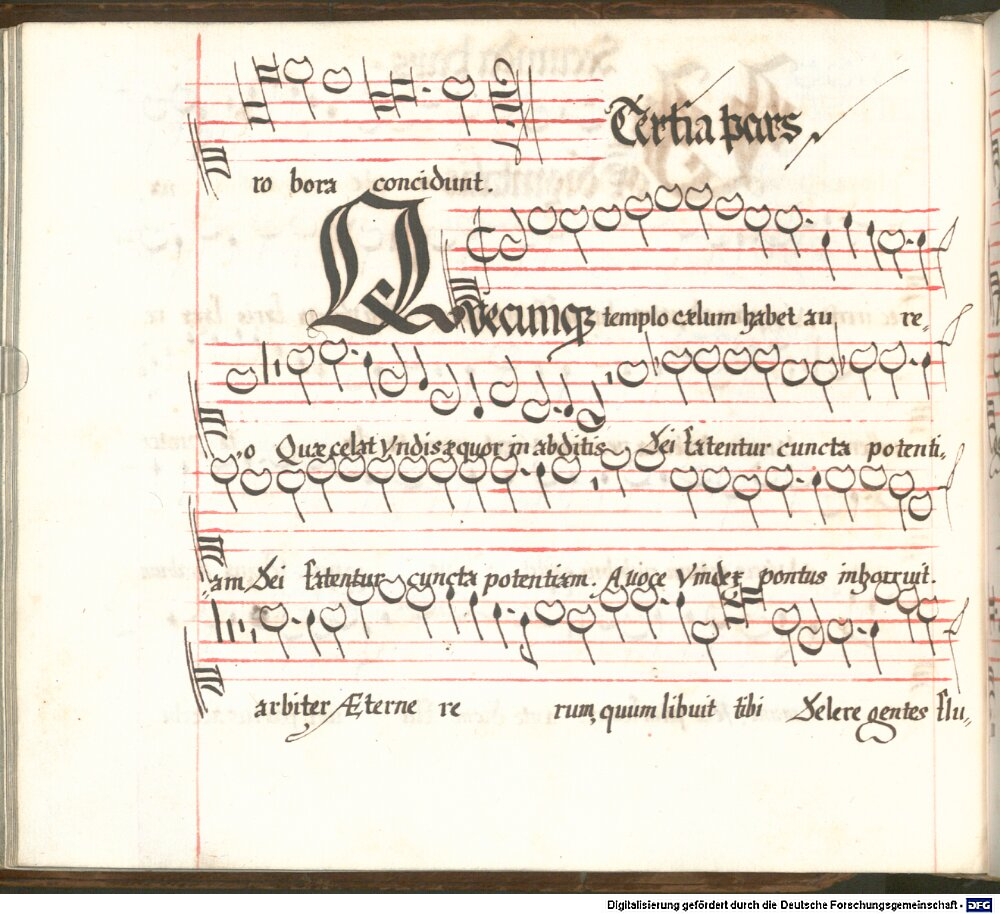 Tertia pars.
ro bora concidunt.
Quecunq; templo cælum habet au re„
„o Quæ celat Vndis æquor in abditis Dei fatentur cuncta potenti„
„am Dei fatentur cuncta potentiam. A uoce Vindex pontus inhorruit.
arbiter Æterne re rum, quum libuit tibi Delere gentes flu„
Digitalisierung gefördert durch die Deutsche Forschungsgemeinschaft - DFG